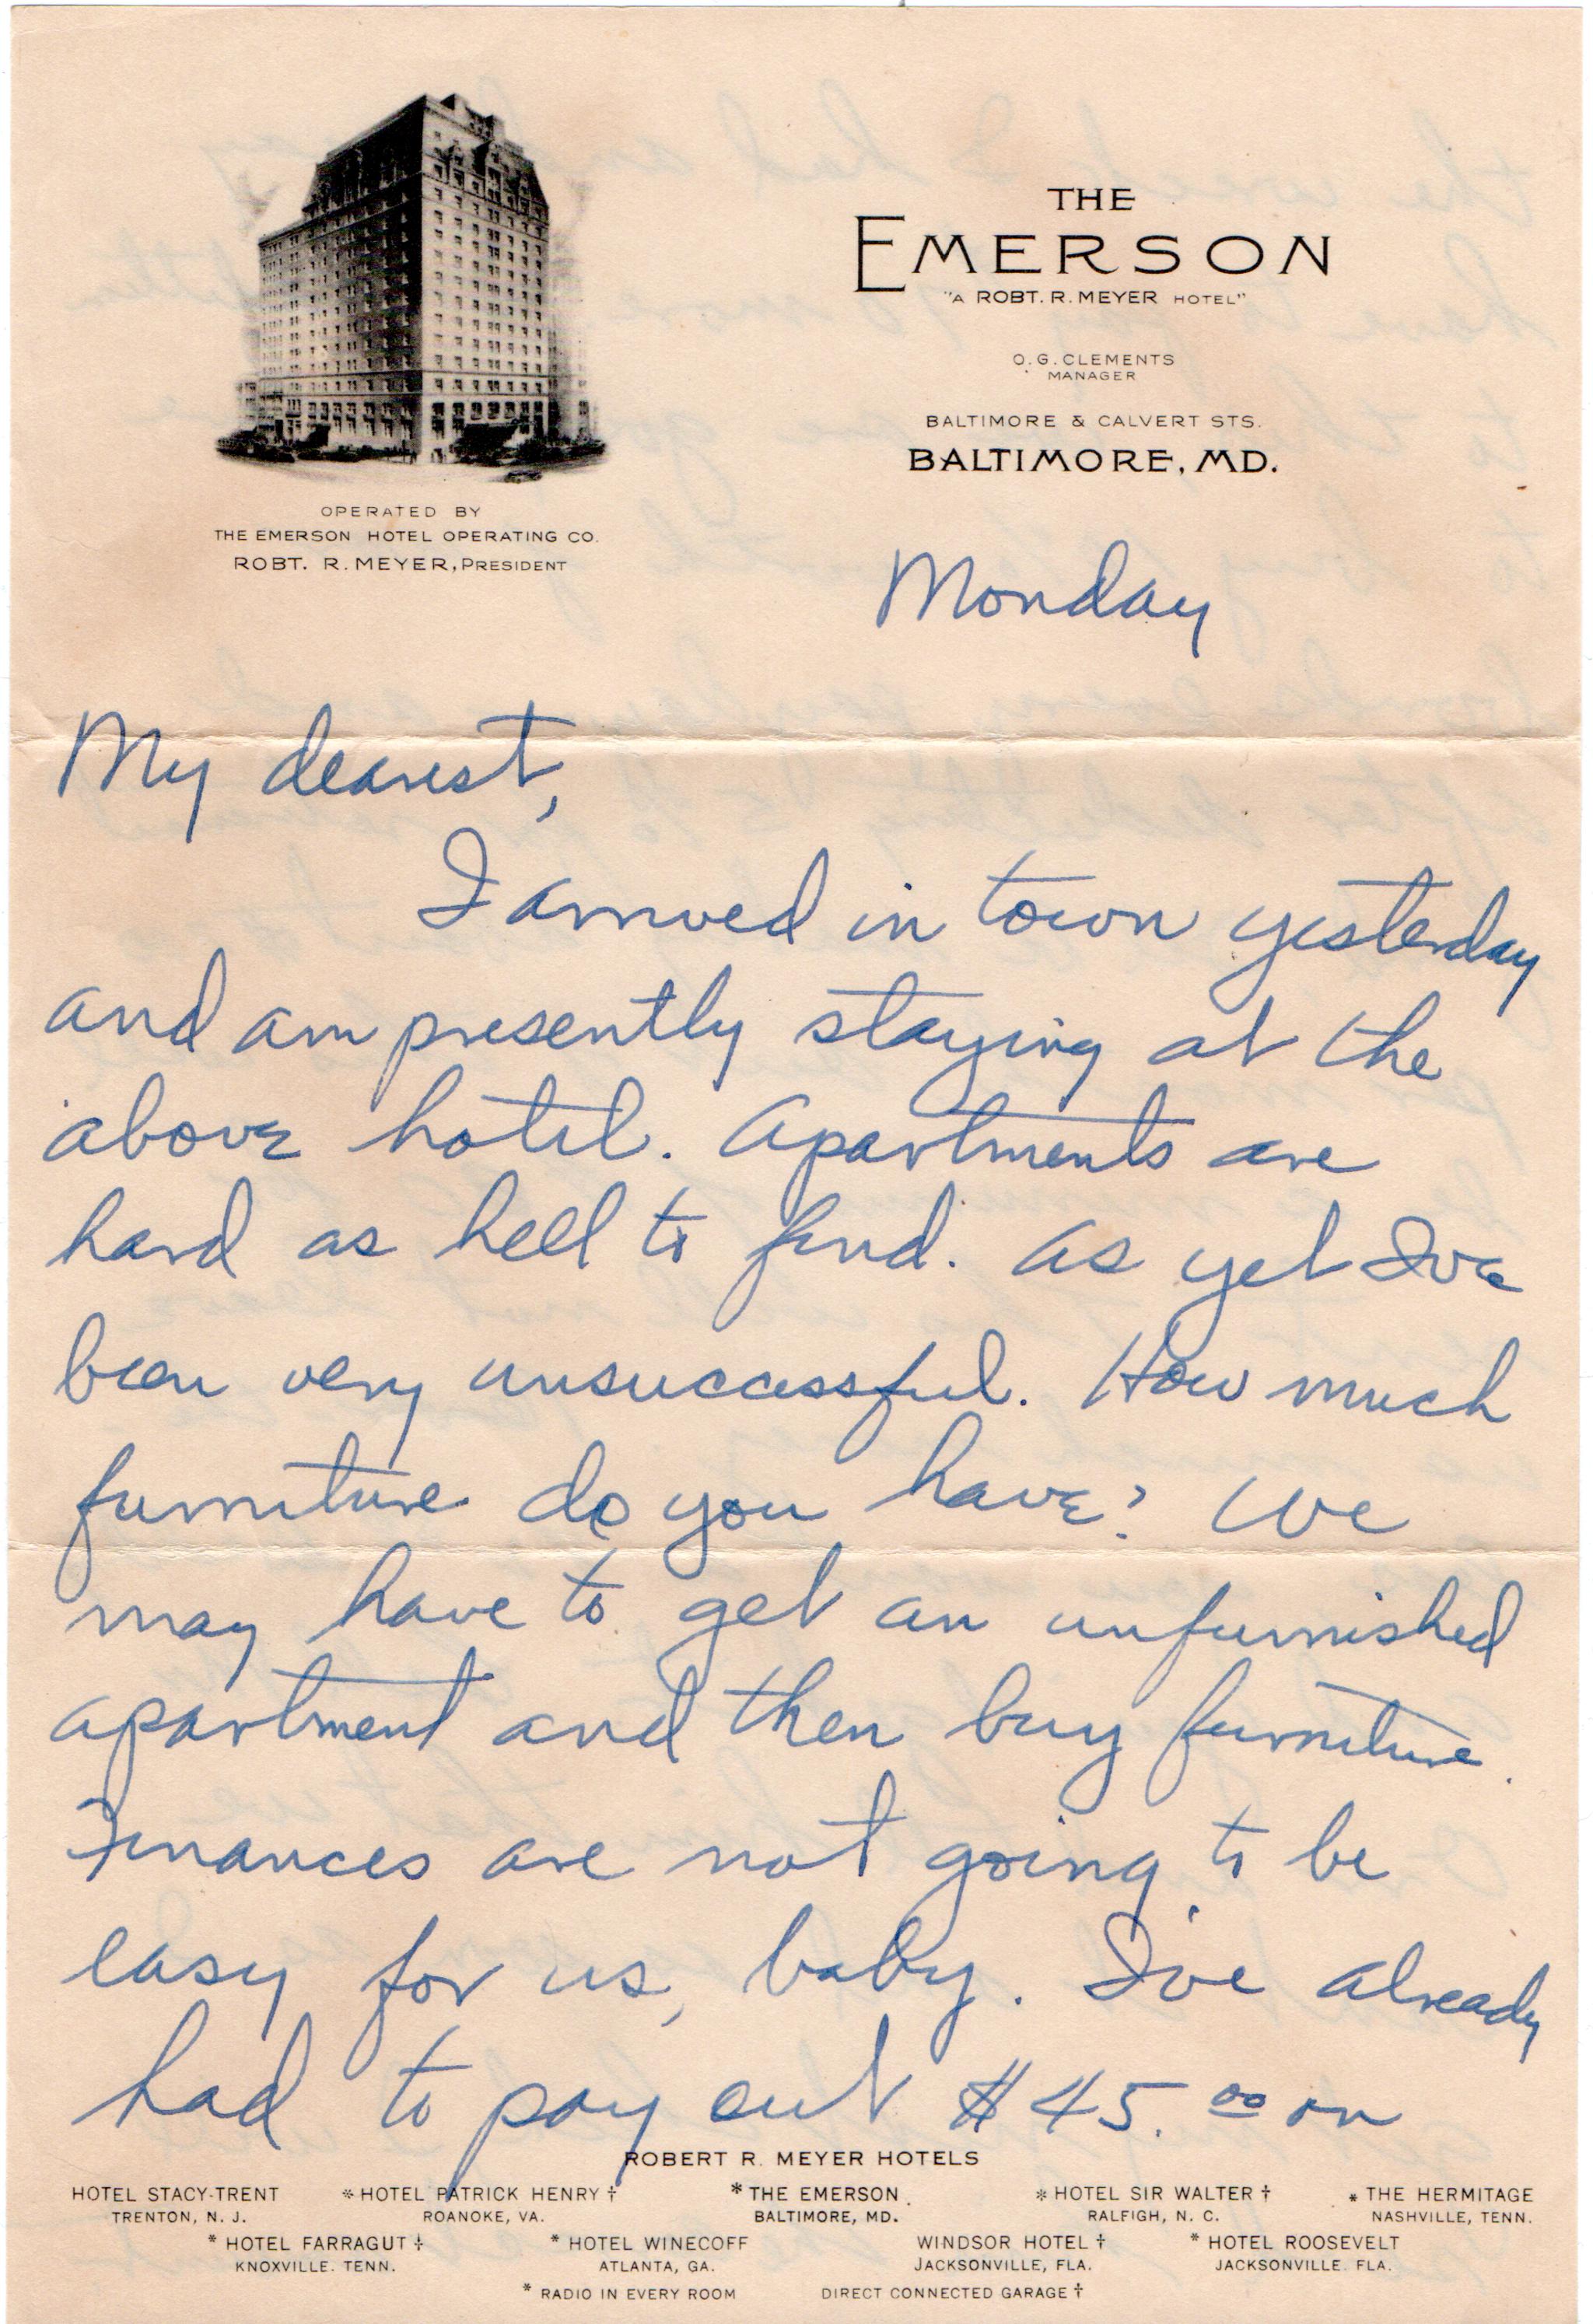 THE
EMERSON
"A ROBT. R. MEYER HOTEL"
O. G. CLEMENTS
MANAGER
BALTIMORE & CALVERT STS.
BALTIMORE, MD.
OPERATED BY
THE EMERSON HOTEL OPERATING CO.
ROBT. R. MEYER, PRESIDENT
Monday
My dearest,
I arrived in town yesterday
and am presently staying at the
above hotel. Apartments are
hard as hell to find. As yet Ive
been very unsuccessful. How much
furniture do you have? We
may have to get an unfurnished
apartment and then buy furniture.
Finances are not going to be
easy for us, baby. I've already
had to pay out $45.00 on
ROBERT R. MEYER HOTELS
HOTEL STACY-TRENT * HOTEL PATRICK HENRY † * THE EMERSON * HOTEL SIR WALTER † * THE HERMITAGE
TRENTON, N. J. ROANOKE, VA. BALTIMORE, MD. RALEIGH, N. C. NASHVILLE, TENN.
* HOTEL FARRAGUT † * HOTEL WINECOFF WINDSOR HOTEL † * HOTEL ROOSEVELT
KNOXVILLE. TENN. ATLANTA, GA. JACKSONVILLE, FLA. JACKSONVILLE. FLA.
* RADIO IN EVERY ROOM DIRECT CONNECTED GARAGE †